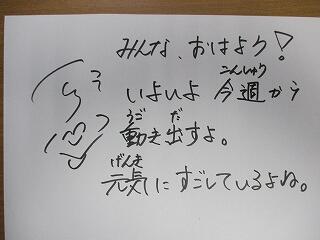 みんな、おはよう!
こんしゅう
いよいよ今週から
うご だ
動き出すよ。
げんき
元気にすごしているよね。